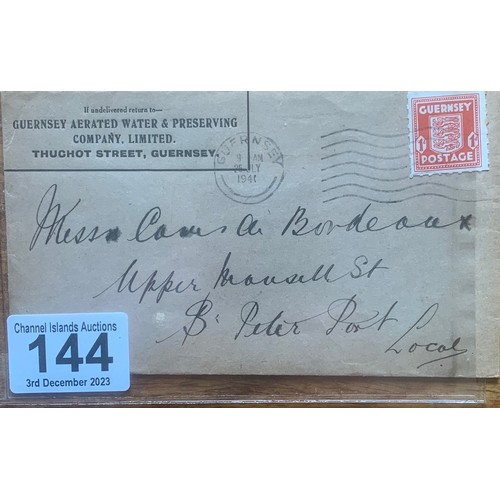 If undelivered return to—
GUERNSEY AERATED WATER & PRESERVING
COMPANY, LIMITED.
THUCHOT STREET, GUERNSEY.
GUERNSEY
9 AM
JLY
1941
GUERNSEY
POSTAGE
Bordeaux
Upper Mansell St
St Peter Port
Local
Channel Islands Auctions
144
3rd December 2023